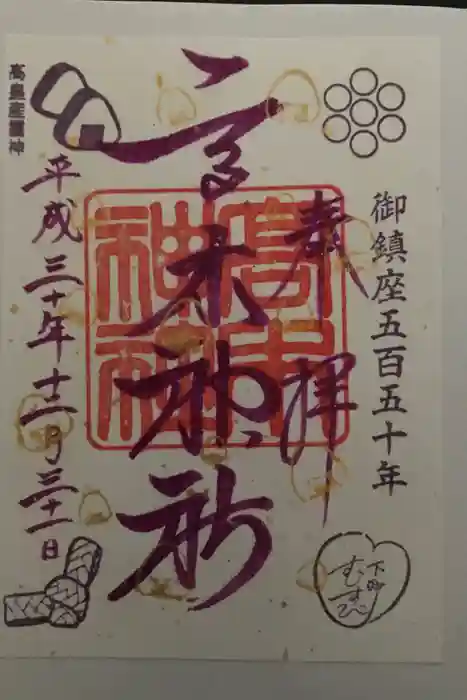 御鎮座五百五十年
奉拝
高木神社
高木神社
高皇産霊神
平成三十年十二月三十一日
下町
むすび